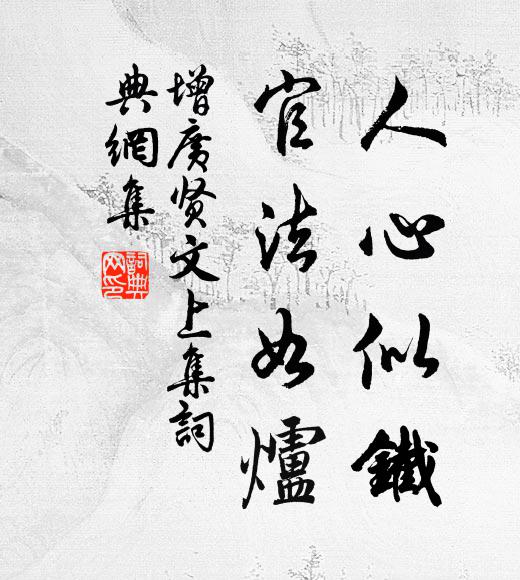 人心似鐵
官法如爐
增廣贤文上集詞
典網集
詞典
网印